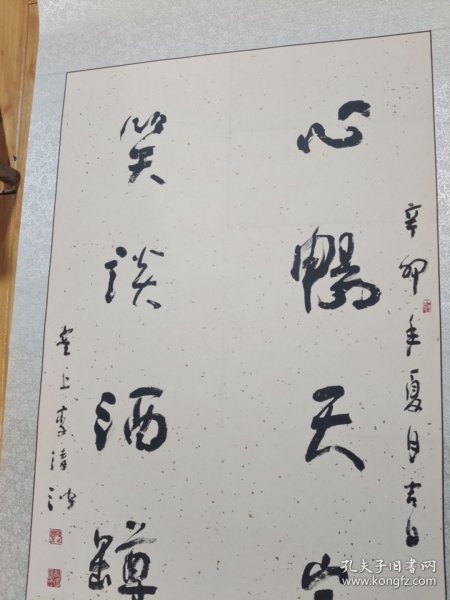 辛卯年夏月吉日
心暢天
笑談酒罇
堂上李清波
孔夫子旧书网
kongfz.com